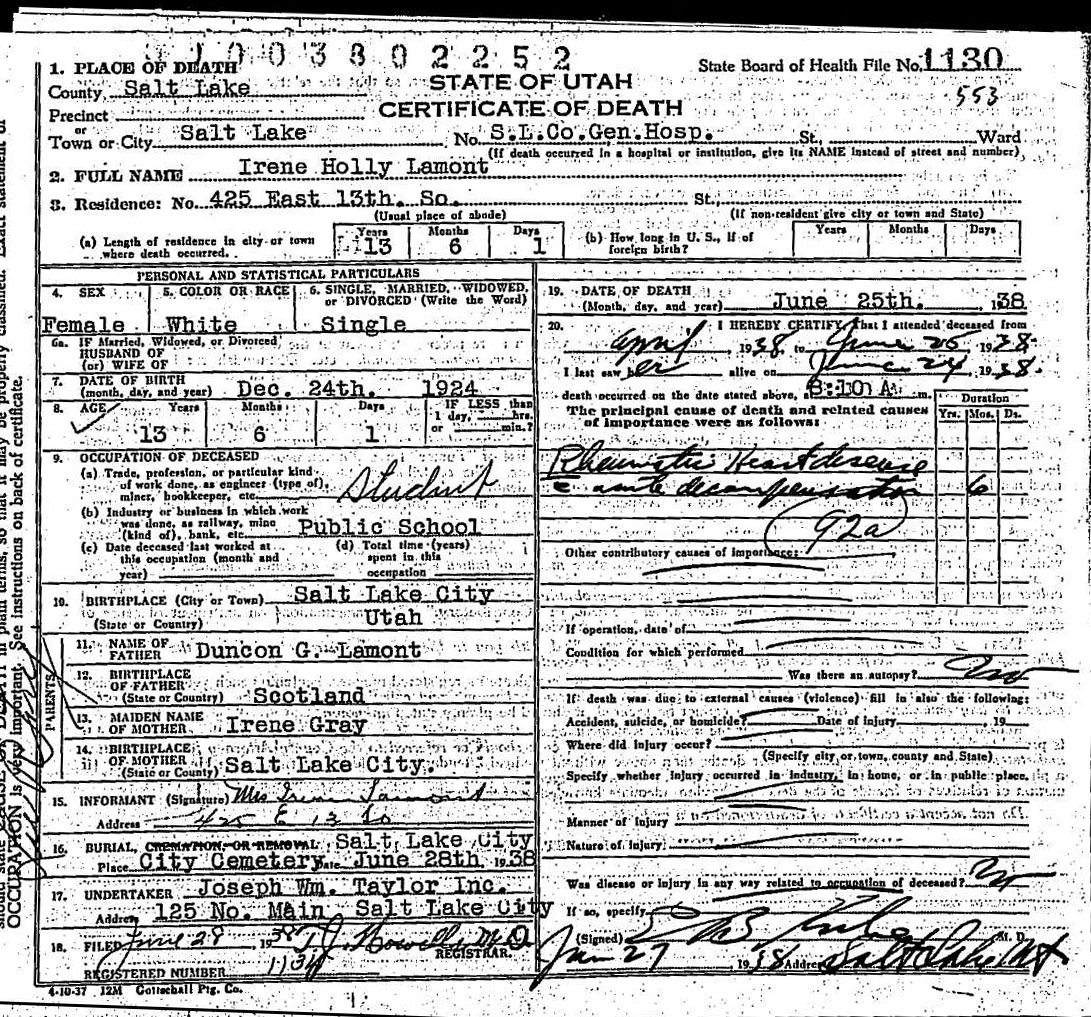 1 0 0 3 8 0 2 2 5 2
1. PLACE OF DEATH
State Board of Health File No. 1130
County Salt Lake
STATE OF UTAH
553
Precinct
CERTIFICATE OF DEATH
or
Town or City Salt Lake No. S.L.Co.Gen.Hosp. St., Ward
(If death occurred in a hospital or institution, give its NAME instead of street and number)
2. FULL NAME Irene Holly Lamont
3. Residence: No. 425 East 13th. So. St.,
(Usual place of abode) (If non-resident give city or town and State)
(a) Length of residence in city or town where death occurred.
Years Months Days
13 6 1
(b) How long in U. S., if of foreign birth?
Years Months Days
PERSONAL AND STATISTICAL PARTICULARS
4. SEX 5. COLOR OR RACE 6. SINGLE, MARRIED, WIDOWED,
or DIVORCED (Write the Word)
Female White Single
6a. IF Married, Widowed, or Divorced
HUSBAND OF
(or) WIFE OF
7. DATE OF BIRTH
(month, day, and year) Dec. 24th. 1924
8. AGE Years Months Days IF LESS than
1 day, hrs.
or min.?
13 6 1
9. OCCUPATION OF DECEASED
(a) Trade, profession, or particular kind
of work done, as engineer (type of),
miner, bookkeeper, etc. Student
(b) Industry or business in which work
was done, as railway, mine
(kind of), bank, etc. Public School
(c) Date deceased last worked at
this occupation (month and
year)
(d) Total time (years)
spent in this
occupation
10. BIRTHPLACE (City or Town) Salt Lake City
(State or Country) Utah
PARENTS
11. NAME OF
FATHER Duncon G. Lamont
12. BIRTHPLACE
OF FATHER
(State or Country) Scotland
13. MAIDEN NAME
OF MOTHER Irene Gray
14. BIRTHPLACE
OF MOTHER
(State or Country) Salt Lake City.
15. INFORMANT (Signature) Mrs Irene Lamont
Address 425 E 13 So
16. BURIAL, CREMATION, OR REMOVAL, Salt Lake City
Place City Cemetery Date June 28th 1938
17. UNDERTAKER Joseph Wm. Taylor Inc.
Address 125 No. Main Salt Lake City
18. FILED June 28 1938 T. J. Howells, M.D.
REGISTRAR.
REGISTERED NUMBER 1134
4-10-37 12M Gottschall Ptg. Co.
19. DATE OF DEATH
(Month, day, and year) June 25th. 1938
20. I HEREBY CERTIFY, That I attended deceased from
April 1938, to June 25 1938.
I last saw her alive on June 24, 1938.
death occurred on the date stated above, a 8:10 A m.
The principal cause of death and related causes
of importance were as follows:
Duration
Yrs. Mos. Ds.
Rheumatic Heart disease
c acute decompensation 6
92a
Other contributory causes of importance:
If operation, date of
Condition for which performed
Was there an autopsy? No
If death was due to external causes (violence) fill in also the following:
Accident, suicide, or homicide? Date of injury 19
Where did injury occur?
(Specify city or town, county and State)
Specify whether injury occurred in industry, in home, or in public place.
Manner of injury
Nature of injury
Was disease or injury in any way related to occupation of deceased? No
If so, specify
(Signed) M. D.
Jun 27 1938 Address Salt Lake
OCCUPATION is very important. See instructions on back of certificate.
in plain terms, so that it may be properly classified. Exact statement of